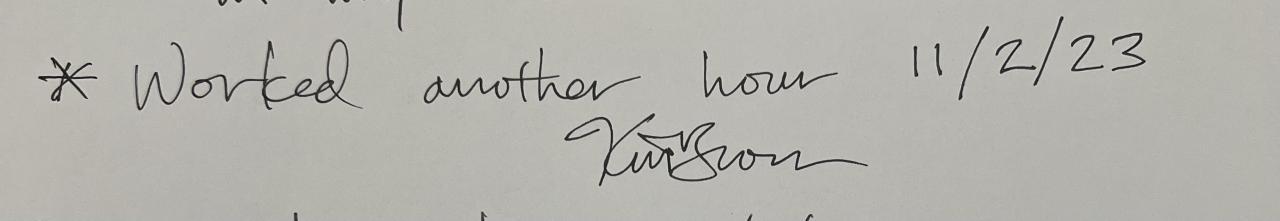 * Worked another hour 11/2/23